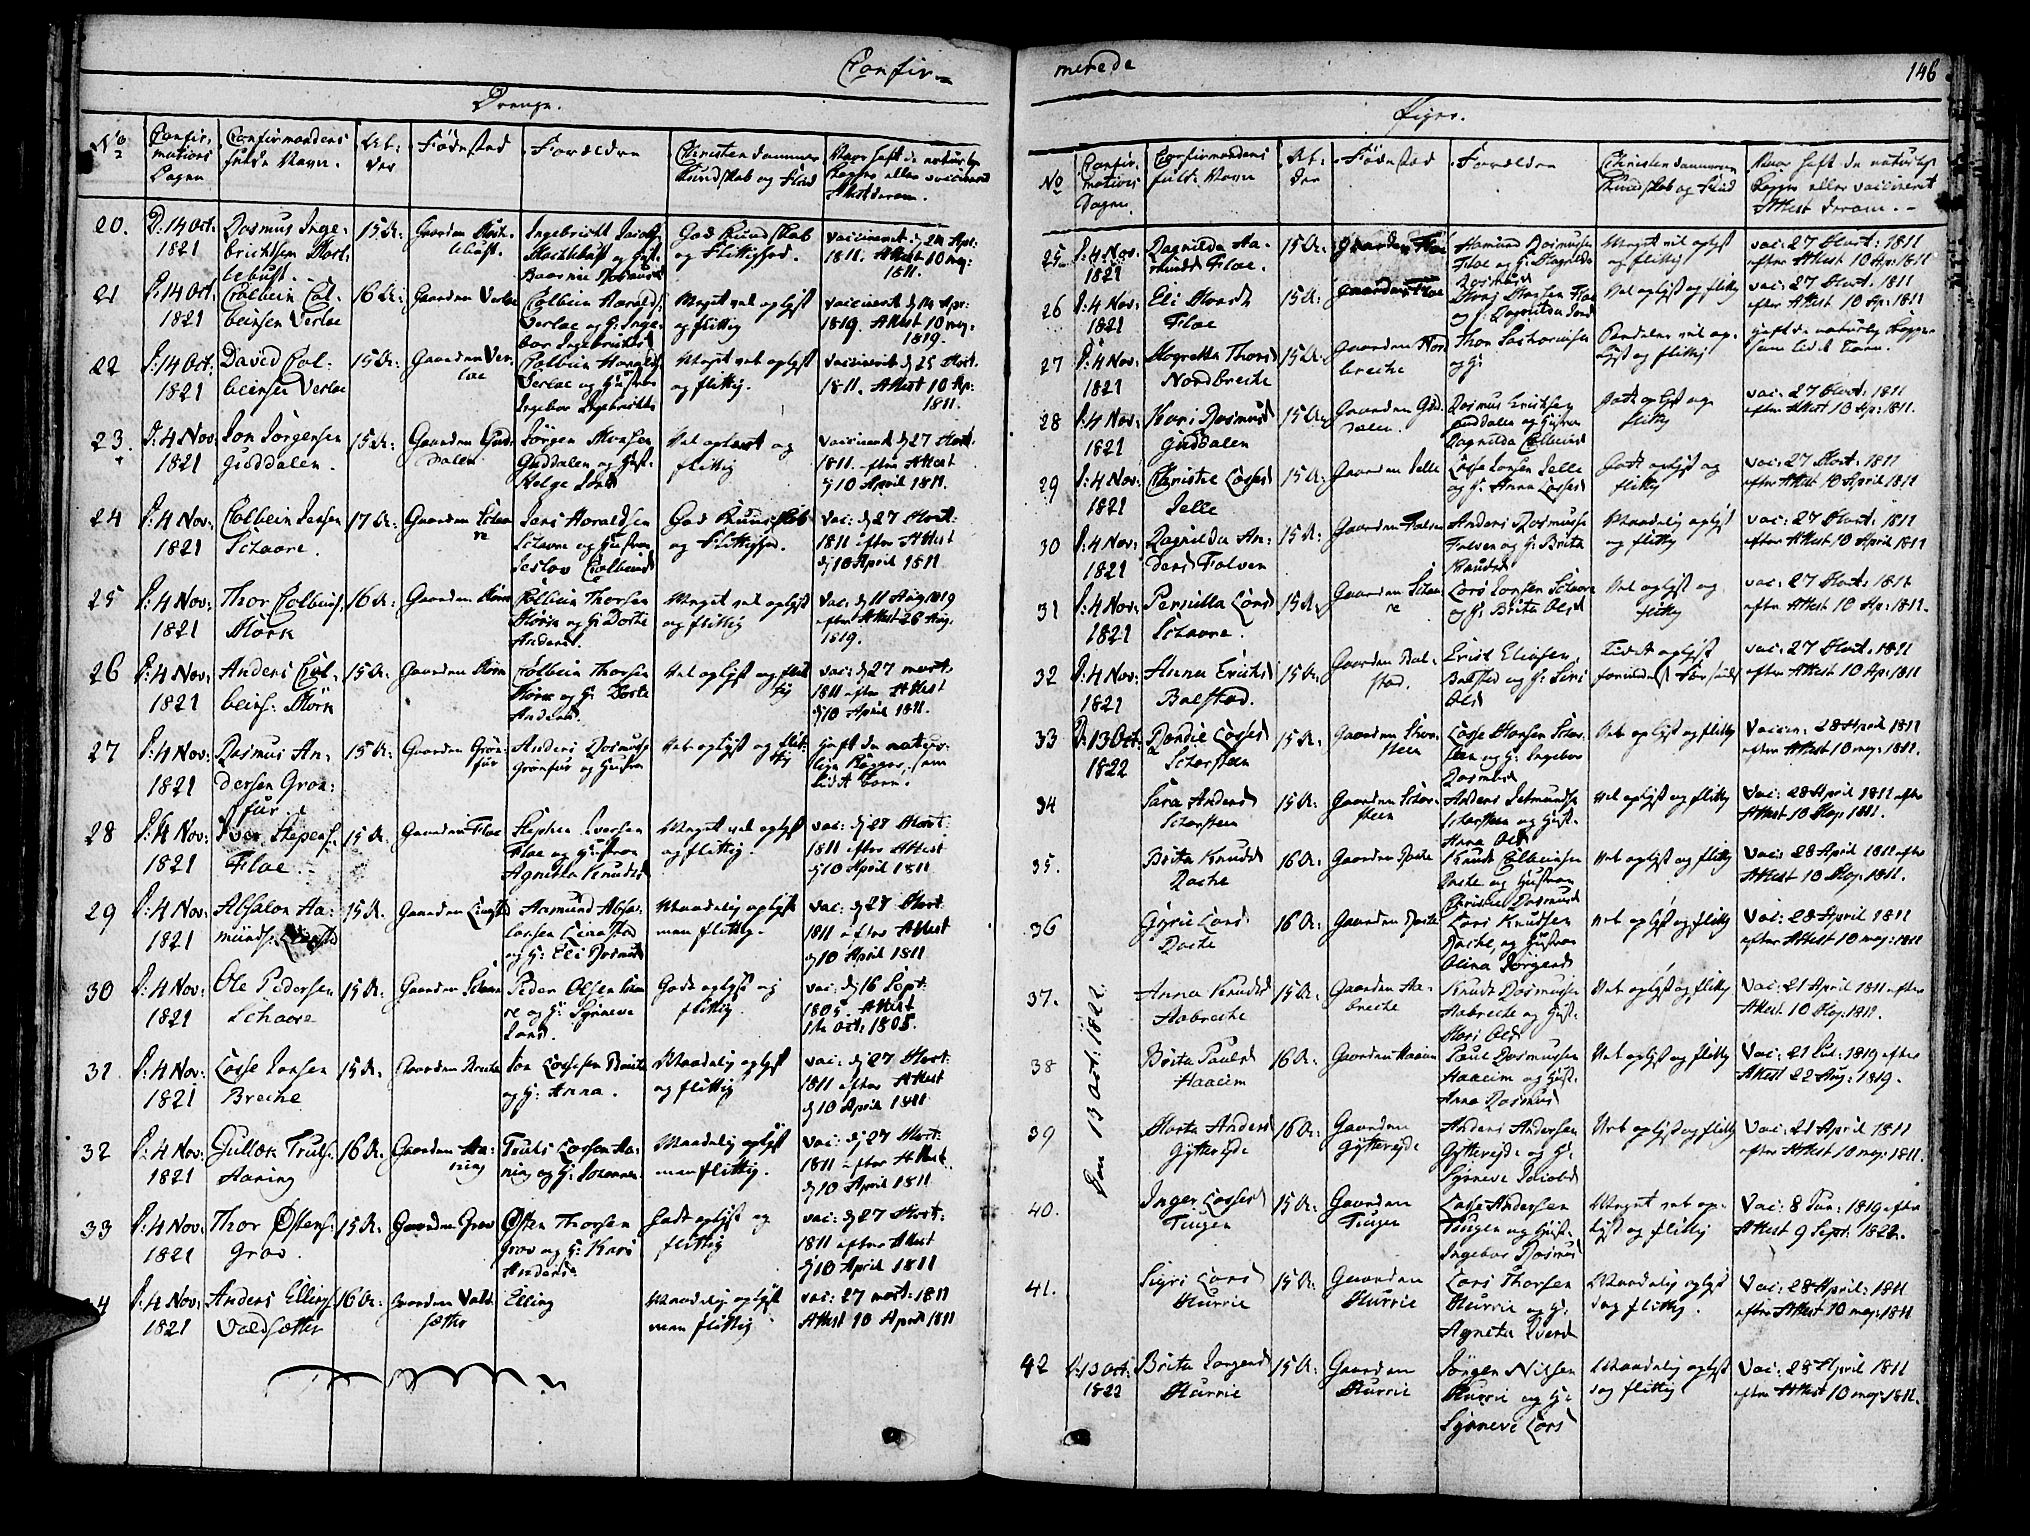 Confir=
Drenge.
No
Confir-
mations
Dagen
Confirmandens
fulde Navn.
Al-
der
Fødested
Forældre
Christendommens
Kundskab og Flid
20.
D: 14 Oct:
1821
Rasmus Inge-
brichtsen
15 A:
Gaarden
God Kundskab
og Flittighed.
vaccineret d: 24 Apr:
1811. Attest 10 maj:
1811.
21
D: 14 Oct:
1821
Colbein Col-
beinsen Verlae
16 A:
Gaarden Verlae
Colbein Haralds:
Verlae og H: Inge-
bor Ingebrichts
Meget vel oplyst
og flittig
vaccineret d: 14 Apr:
1819. Attest 10 maj:
1819.
22
D: 14 Oct:
1821
David Col-
beinsen Verlae
15 A:
Gaarden Ver-
lae
Colbein Haralds:
Verlae og Hustroe
Ingebor Ingebrichts
Meget vel oplyst
og flittig.
vaccineret d: 25 Mart:
1811. Attest 10 Ap:
1811.
23.
D: 4 Nov
1821
Jon Jørgensen
Guddalen.
15 A:
Gaarden Gud-
dalen
Jørgen Monsen
Guddalen og Hust:
Helge Jons
Vel oplært og
flittig
vaccineret d: 27 Mart:
1811. efter Attest
d: 10 April 1811.
24
D: 4 Nov:
1821
Colbein Jensen
Schaare.
17 A:
Gaarden Schaa-
re
Jens Haraldsen
Schaare og Hustroe
Colbeins
God Kundskab
og Flittighed.
vac: d: 27 Mart:
1811 efter Attest
d: 10 April 1811
25
D: 4 Nov:
1821
Thor Colbeins:
Mørk
16 A:
Gaarden Mørk
Colbein Thorsen
Mørk og H: Dorte
Anders.
Meget vel oplyst
og flittig
Vac: d: 11 Aug 1819
efter Attest 26 Aug.
1819.
26
D: 4 Nov:
1821
Anders Col-
beins: Mørk
15 A:
Gaarden Mørk
Colbein Thorsen
Mørk og H: Dorte
Anders.
Vel oplyst og flit-
tig
vac: d: 27 mart:
1811 efter Attest
d: 10 April 1811.
27
D: 4 Nov:
1821
Rasmus An-
dersen Grøn-
fur
15 A:
Gaarden Grøn-
fur
Anders Rasmuss:
Grønfur og Hustroe
Vel oplyst og flit-
tig
haft de natur-
lige Kopper, som
lidet barn.
28
D: 4 Nov:
1821
Iver Stepens:
Floe.
15 A:
Gaarden Floe
Stephen Iversen
Floe og Hustroe
Agnetha Knuds
Meget vel oplyst
og flittig.
vac: d: 27 Mart:
1811 efter Attest
d: 10 April 1811
29
D: 4 Nov:
1821
Absalon Aa-
munds:
15 A:
Gaarden
Aamund Absa-
lonsen
og H: Eli Rasmus
Maadelig oplyst
men flittig.
vac: d: 27 Mart:
1811 efter Attest
d: 10 April 1811
30
D: 4 Nov:
1821
Ole Pedersen
Schaare
15 A:
Gaarden Schaare
Peder Olsen Schaa-
re og H: Synneve
Lars
Godt oplyst og
flittig.
vac: d: 16 Sept:
1805. Attest
1te Oct: 1805.
31
D: 4 Nov:
1821
Lasse Jonsen
Breche
15 A:
Gaarden Breche
Jon Lassesen Breche
og H: Anna.
Maadelig oplyst
og flittig
vac: d: 27 Mart:
1811 efter Attest
d: 10 April 1811
32
D: 4 Nov:
1821
Gullak Truls:
Aaning
16 A:
Gaarden Aa-
ning
Truls Larsen Aa-
ning og H: Johanne
Maadelig oplyst
men flittig.
vac: d: 27 Mart:
1811 efter Attest
d: 10 April 1811
33
D: 4 Nov:
1821
Thor Østens:
Grov.
15 A:
Gaarden Grov
Østen Thorsen
Grov og H: Kari
Anders.
Godt oplyst og
flittig
vac: d: 27 Mart:
1811 efter Attest
d: 10 April 1811
34
D: 4 Nov:
1821
Anders Ellings
Valdsætter
16 A:
Gaarden Vald-
sætter
Elling
Maadelig oplyst
men flittig
vac: 27 mart: 1811
Attest 10 April 1811
merede
146
Piger.
No
Confir-
mations
Dagen.
Confirmandens
fulde Navn
Al-
der
Fødested
Forældre
Christendommens
Kundskab og Flid
Naar haft de naturlige
Kopper eller vaccineret
Attest derom.
25
D: 4 Nov:
1821
Ragnilda Aa-
munds Floe.
15 A:
Gaarden Floe
Aamund Rasmussen
Floe og H: Ragnilda
Rasmus
Meget vel oplyst
og flittig
vac: 27 Mart: 1811
efter Attest 10 Ap: 1811
26
D: 4 Nov:
1821
Eli Mons
Floe
15 A:
Gaarden Floe
Mons Hansen Floe
og H: Ragnilda Jons
Vel oplyst og flittig
vac: 27 Mart: 1811
efter Attest 10 Ap: 1811
27
D: 4 Nov:
1821
Magretha Thors
Nordbreche
15 A:
Gaarden Nord
breche
Thor Zachariassen
og H:
vel op-
lyst og flittig
haft de naturlig Kopper
som lidet barn.
28
D: 4 Nov:
1821
Kari Rasmus
Guddalen
15 A:
Gaarden Gud-
dalen.
Rasmus Erichsen
Guddalen og Hustroe
Ragnilda Colbeins
Godt oplyst og
flittig
vac: 27 Mart: 1811
efter Attest 10 Ap: 1811.
29
D: 4 Nov:
1821
Christie Lasses
Jelle
15 A:
Gaarden Jelle
Lasse Jonsen Jelle
og H: Anna Lasses
Godt oplyst og
flittig
vac: 27 Mart: 1811
efter Attest 10 April 1811
30
D: 4 Nov:
1821
Ragnilda An-
ders Folven
15 A:
Gaarden Folven
Anders Rasmussen
Folven og H: Brita
Knuds
Maadelig oplyst
og flittig
vac: 27 Mart: 1811
efter Attest 10 April 1811
31
D: 4 Nov:
1821
Pernilla Lars
Schaare.
15 A:
Gaarden Schaa-
re
Lars Larsen Schaare
og H: Brita Ols
Vel oplyst og
flittig
vac: 27 Mart: 1811
efter Attest 10 Ap: 1811.
32
D: 4 Nov:
1821
Anna Erichs
Bolstad.
15 A:
Gaarden Bol-
stad.
Erich Eliasen
Bolstad og H: Siri
Ols
Lidet oplyst
vac: 27 Mart: 1811
efter Attest 10 Ap: 1811
33
D: 13 Oct:
1822
Dordie Lasses
Schorsteen
15 A:
Gaarden Schor-
steen
Lasse Hansen Schor-
steen og H: Ingebor
Rasmus
Vel oplyst og flittig
Vaccin: 28 April 1811
efter Attest 10 maj: 1811.
34
Den 13 Oct: 1822.
Sara Anders
Schorsteen
15 A:
Gaarden Schor-
steen
Anders Selmunds:
Schorsteen og Hust:
Anna Ols
Vel oplyst og flittig
Vac: 28 April 1811 efter
Attest 10 Maj: 1811.
35.
Brita Knuds
Rache
16 A:
Gaarden Rache
Knud Colbeinsen
Rache og Hustroe
Christie Rasmus
Vel oplyst og flittig
Vac: 28 April 1811 efter
Attest 10 Maj: 1811.
36
Gyrie Lars
Rache
16 A:
Gaarden Rache
Lars Knudsen
Rache, og Hustroe
Olina Jørgens
Vel oplyst og flittig
Vac: 28 April 1811
efter Attest 10 maj: 1811
37.
Anna Knuds
Aabreche
15 A:
Gaarden Aa-
breche
Knud Rasmussen
Aabreche og Hust:
Mari Ols
Vel oplyst og flittig
Vac: 21 April 1811 efter
Attest 10 Maj: 1811.
38
Brita Pauls
Haaeim
16 A:
Gaarden Haaeim
Paul Rasmussen
Haaeim og Hust:
Anna Rasmus
Vel oplyst og flittig
Vac: 21 Jul: 1819 efter
Attest 22 Aug: 1819.
39
Marta Anders
Gytterejde
16 A:
Gaarden
Gytterejde
Anders Andersen
Gytterejde og H:
Synneve Jacobs
Vel oplyst og flittig
Vac: 21 April 1811
efter Attest 10 maj: 1811.
40.
Inger Lasses
Tiugen
15 A:
Gaarden
Tiugen
Lasse Andersen
Tiugen og Hust:
Ingebor Rasmus
Meget vel op-
lyst og flittig
Vac: 8 Jun: 1819 efter
Attest 9 Sept: 1822.
41.
Sigri Lars
Hurrie
15 A:
Gaarden
Hurrie
Lars Thorsen
Hurrie og H:
Agneta Ivers
Maadelig oplyst
dog flittig.
Vac: 28 April: 1811
efter Attest 10 maj: 1811
42
D: 13 Oct:
1822
Brita Jørgens
Hurrie
15 A:
Gaarden
Hurrie
Jørgen Nilsen
Hurrie og H:
Synneve Lars
Maadelig oplyst
dog flittig
Vac: 28 April 1811
efter Attest 10 maj: 1811.